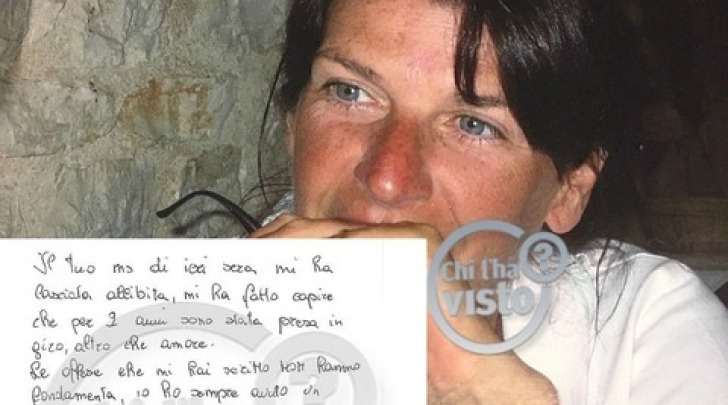 Il tuo ms di ieri sera mi ha
lasciata allibita, mi ha fatto capire
che per 2 anni sono stata presa in
giro, altro che amore.
Le offese che mi hai scritto non hanno
fondamenta, io ho sempre avuto un
Chi l'ha
visto?